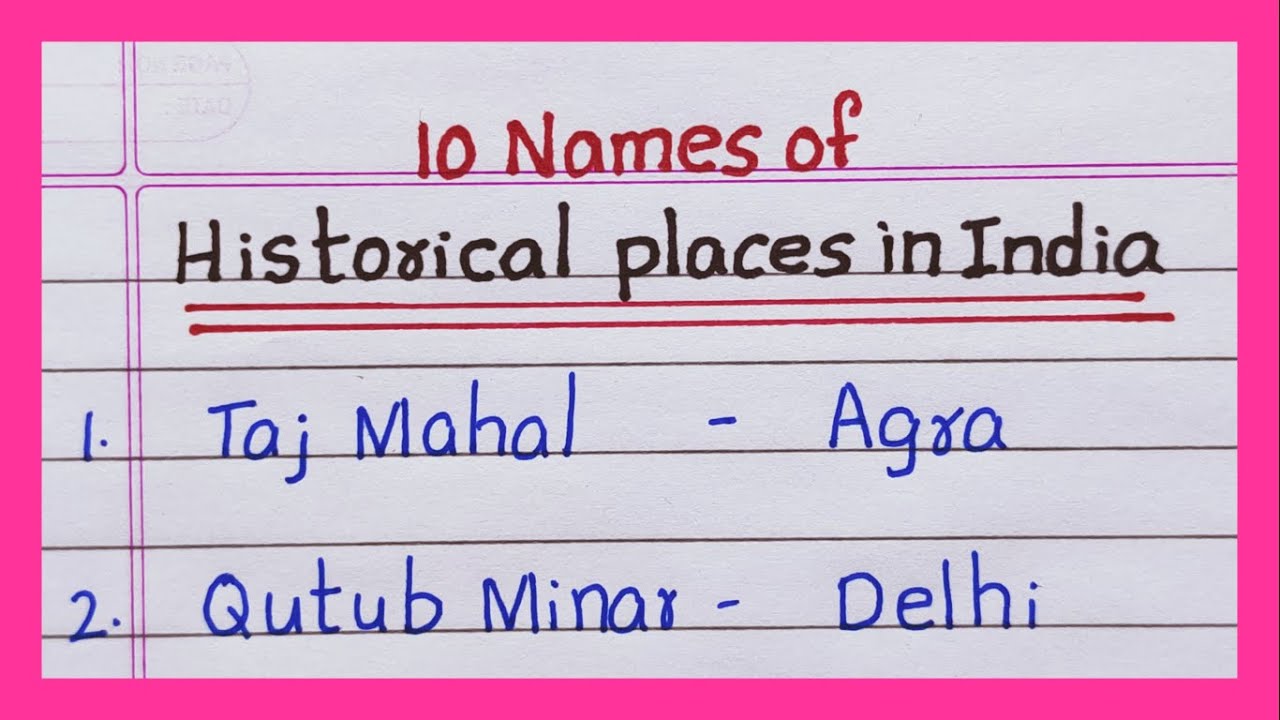 10 Names of
Historical places in India
1. Taj Mahal - Agra
2. Qutub Minar - Delhi